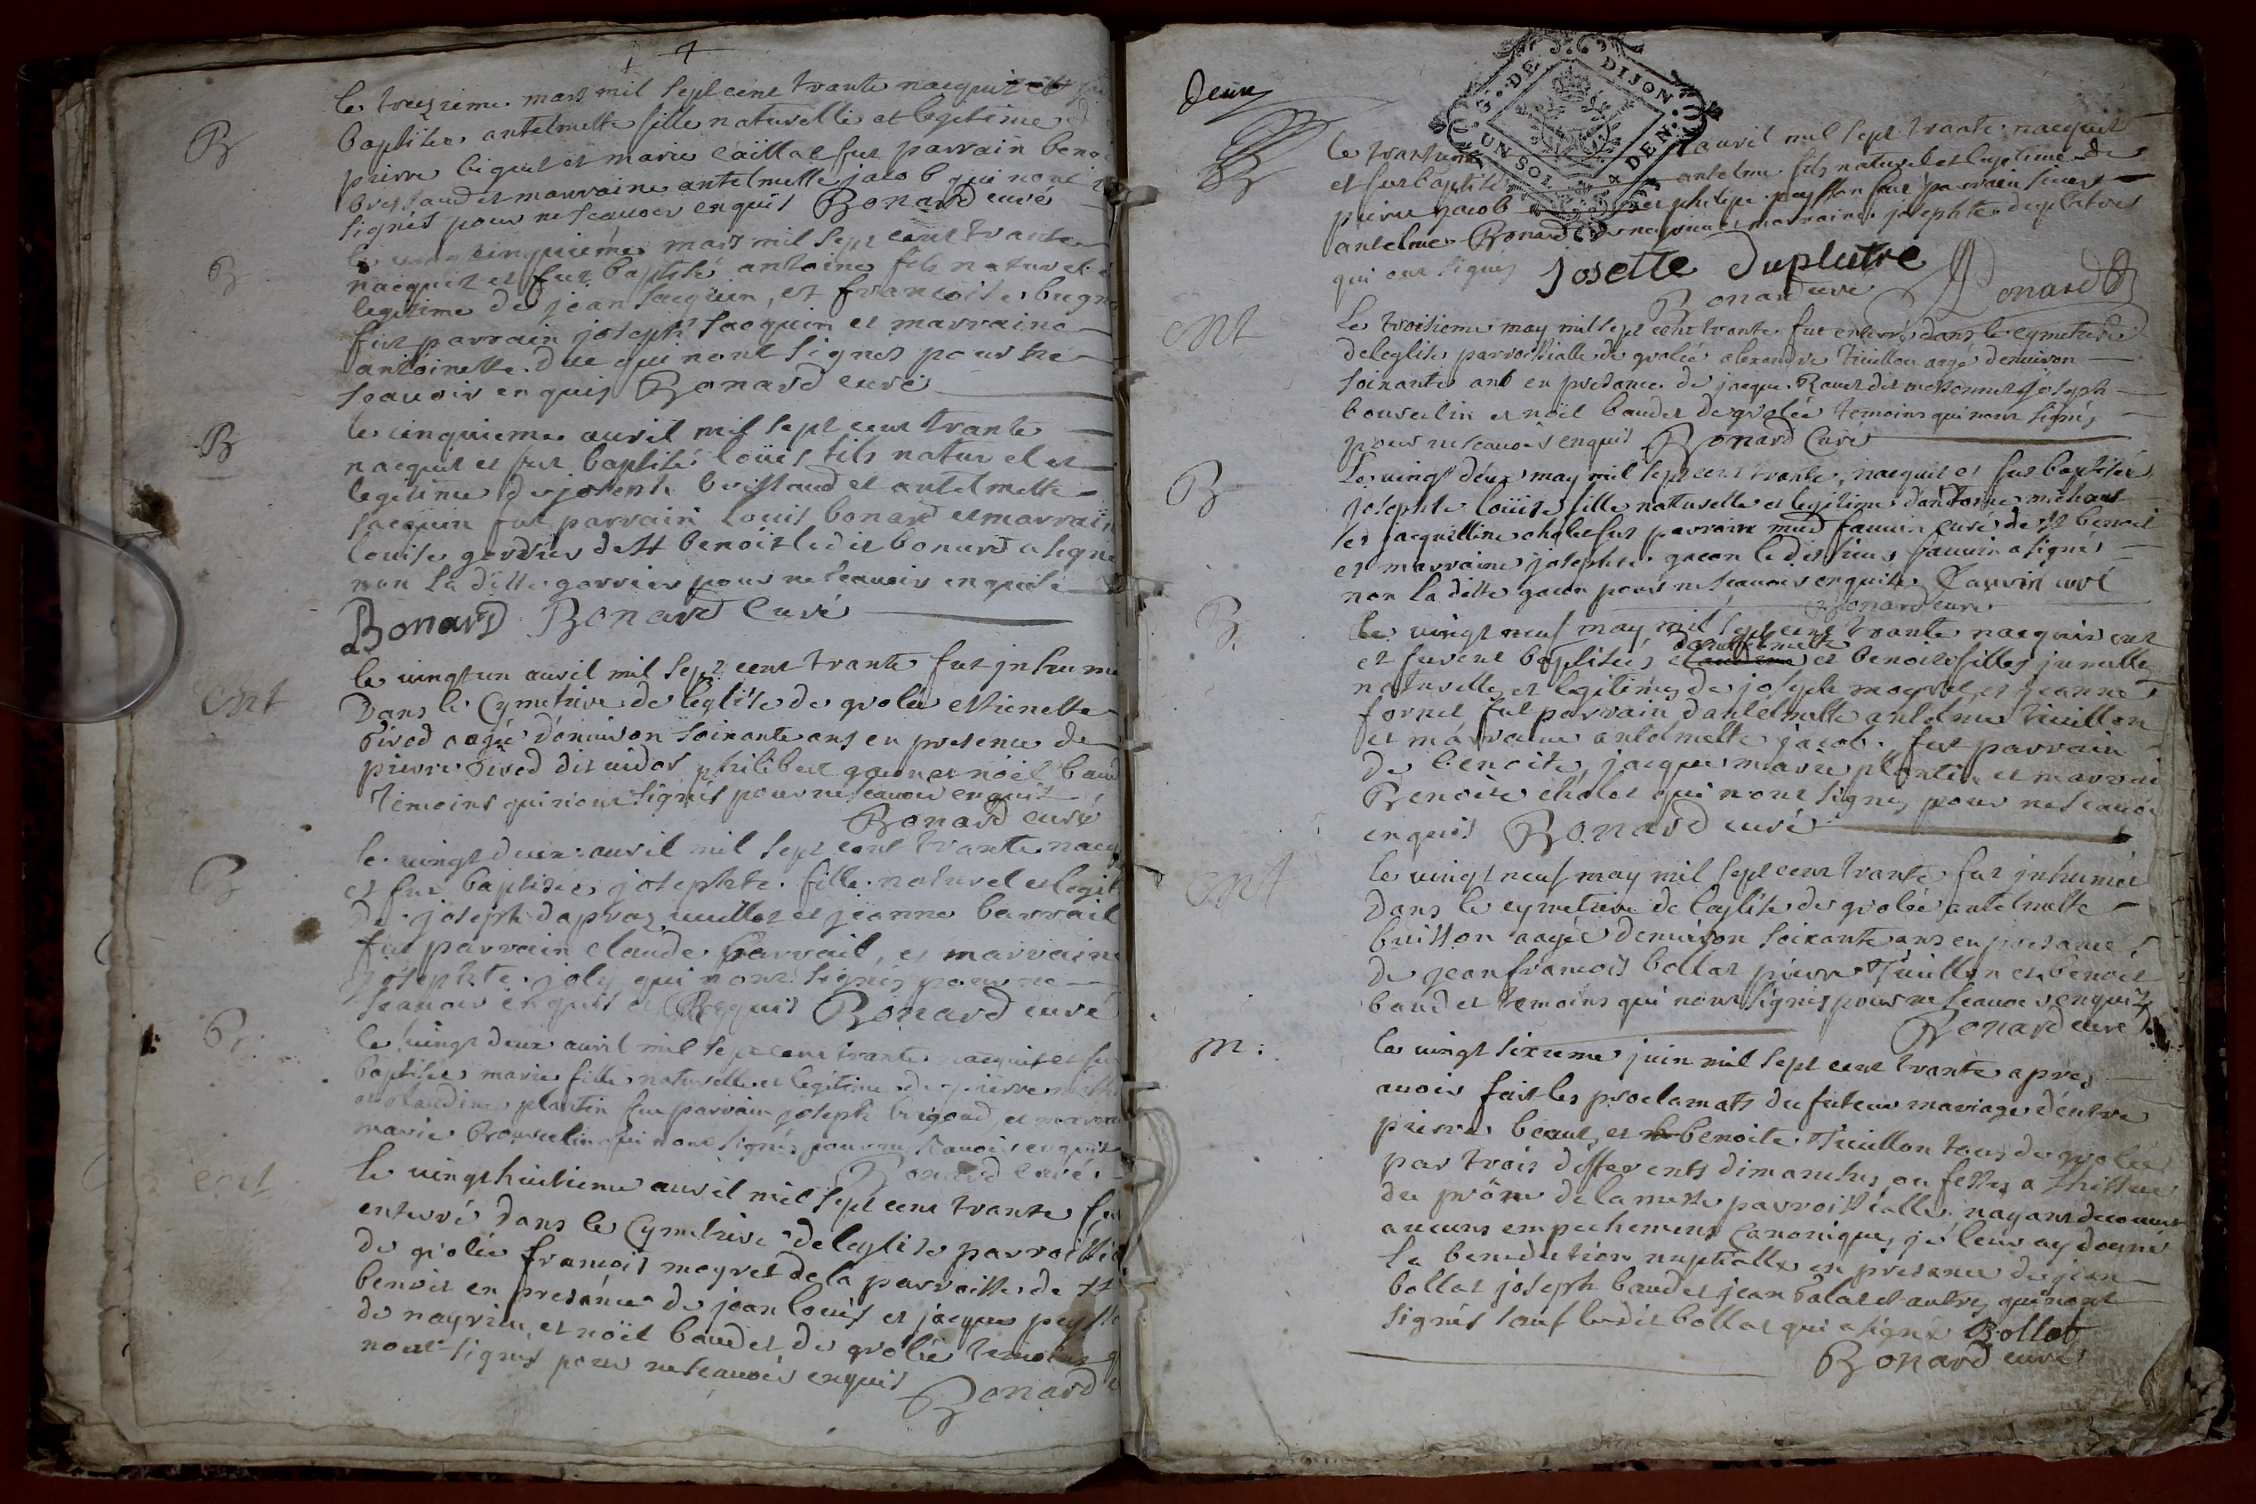 B
le treizieme mars mil sept cent trante nacquit et fut
baptisée antelmette fille naturelle et legitime d
pierre biguet et marie caillat fut parrain benoi
bressaud et marraine antelmette jacob qui nont
signés pour ne scauoir enquis Bonard curé
B
le cinquieme mars mil sept cent trante
nacquit et fut baptisé antoine fils naturel e
legitime de jean jacquin, et francoise bugn
fut parrain joseph jacquin et marraine
antoinette due qui nont signés pour ne
scauoir enquis Bonard curé
B
le cinquieme auril mil sept cent trante
nacquit et fut baptisé loüis fils naturel et
legitime de joseph bressaud et antelmette
jacquin fut parrain Louis bonard et marrain
louise gorrier de st benoit ledit bonard a signé
non la ditte gorrier pour ne scauoir enquise
Bonard Bonard Curé
Ent
le vingt un auril mil sept cent trante fut jnhume
Dans le Cymetiere de leglise de grolée estienette
Pirod aagée dénuiron soixante ans en presence de
pierre Pirod dit uidor philibert gacon et nöel baud
Temoins qui nont signés pour ne scauoir enquis
Bonard curé
B
le vingt deux auril mil sept cent trante nacq
et fut baptisée josephte fille naturel et legit
de joseph dapraz uuillot et jeanne barrail
fut parrain claude barrail, et marraine
josephte joly qui nont signés pour ne
scauoir enquis et Requis Bonard curé
B
le vingt deux auril mil sept cent trante nacquit et fut
baptisée marie fille naturelle et legitime de pierre
et claudine plantin fut parrain joseph brigoud et marrai
marie Bouvelin qui nont signés pour ne scauoir enquis
Bonard Curé
Ent
le vingt huitieme auril mil sept cent trante fut
enterré dans le Cymetiere de leglise parroissi
de grolée francois meyret de la parroisse de st
benoit en presance de jean louis et jacque peysso
de nayrieu, et nöel baudet de grolée temoins q
nont signés pour ne scauoir enquis
Bonard c
deux
G. DE DIJON
UN SOL 4 DEN.
B
le trante auril mil sept trante nacquit
et fut baptisé anselme fils naturel et legitime de
pierre jacob et philipe peysson fut parrain sieur
anselme Bonard de nayrieu et marraine josephte duplatre
qui ont signés Josette Duplutre Bonard
Bonard curé
Ent
Le troisieme may mil sept cent trante fut enterré dans le cymetiere
de leglise parroissialle de grolée alexandre Tuillon aagé denuiron
soixante ans en presance de jacque Rauet dit messonnet joseph
bouvelin et nöel baudet de grolée temoins qui nont signés
pour ne scauoir enquis Bonard Curé
B
Le vingt déux may mil sept cent trante, nacquit et fut baptisée
josephte loüise fille naturelle et legitime dantoine michaut
et jacquelline cholet fut parrain mre fauuin curé de st benoit
et marraine josephte gacon le dit sieur fauuin a signés
non la ditte gacon pour ne scauoir enquise Fauvin curé
Bonard curé
B.
le vingt neuf may mil sept cent trante nacquirent
et furent baptisées dantelmette et benoite filles jumelles
naturelles et legitimes de joseph meyret et jeanne
fornet fut parrain dantelmette antelme Tuillon
et marraine antelmette jacob, fut parrain
de benoite jacque marie plantin et marrai
Benoite cholet qui nont signes pour ne scauoi
enquis Bonard curé
Ent
le vingt neuf may mil sept cent trante fut jnhumée
Dans le cymetiere de leglise de grolée antelmette
buisson aagée denuiron soixante ans en presance
de jean francois bollat pierre Tuillon et benoit
baudet temoins qui nont signés pour ne scauoir enquis
Bonard curé
m:
le vingt sixieme juin mil sept cent trante apres
auoir fait les proclamats du futeur mariage d'entre
pierre beaut, et benoite Tuillon tous de grolée
par trois differents dimanches ou festes a l'hissue
du prône de la messe parroissialle nayant decouuert
aucuns empechemens Canoniques je leur ay donné
La benediction nuptialle en presance de jean
bollat joseph baudet jean Palat et autres qui nont
signés sauf ledit bollat qui a signé Bollat
Bonard curé